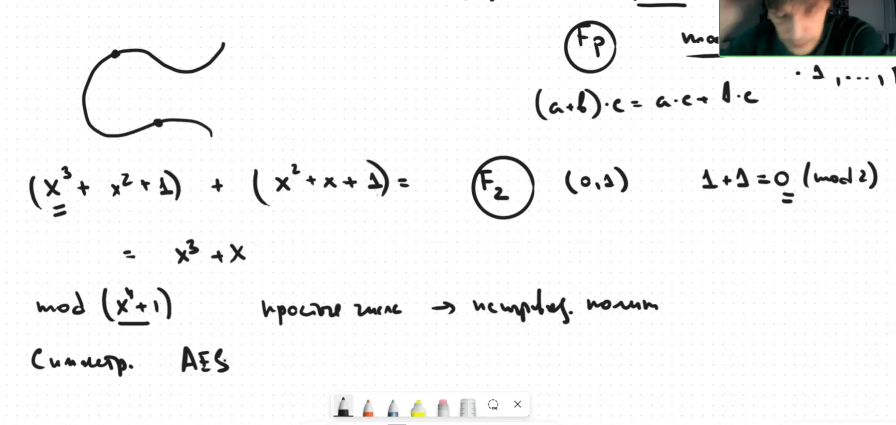 Fp
(a+b)·c = a·c + b·c
· 1, ...,
(x³ + x² + 1) + (x² + x + 1) =
F₂ (0,1) 1 + 1 = 0 (mod 2)
= x³ + x
mod (x⁴+1) простые числа → непривод. полином
Симметр. AES